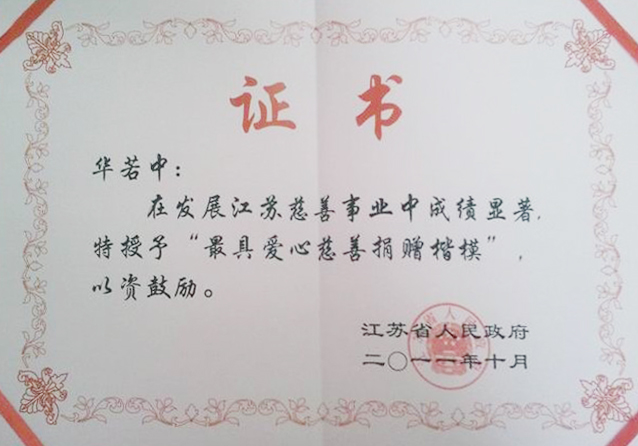 证书
华若中：
在发展江苏慈善事业中成绩显著，
特授予“最具爱心慈善捐赠楷模”，
以资鼓励。
江苏省人民政府
二〇一一年十月